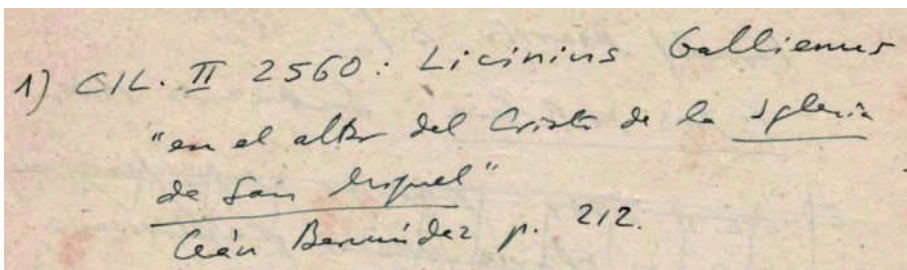 1) CIL. II 2560: Licinius Gallienus
"en el altar del Cristo de la Iglesia
de San Miguel"
Ceán Bermúdez p. 212.